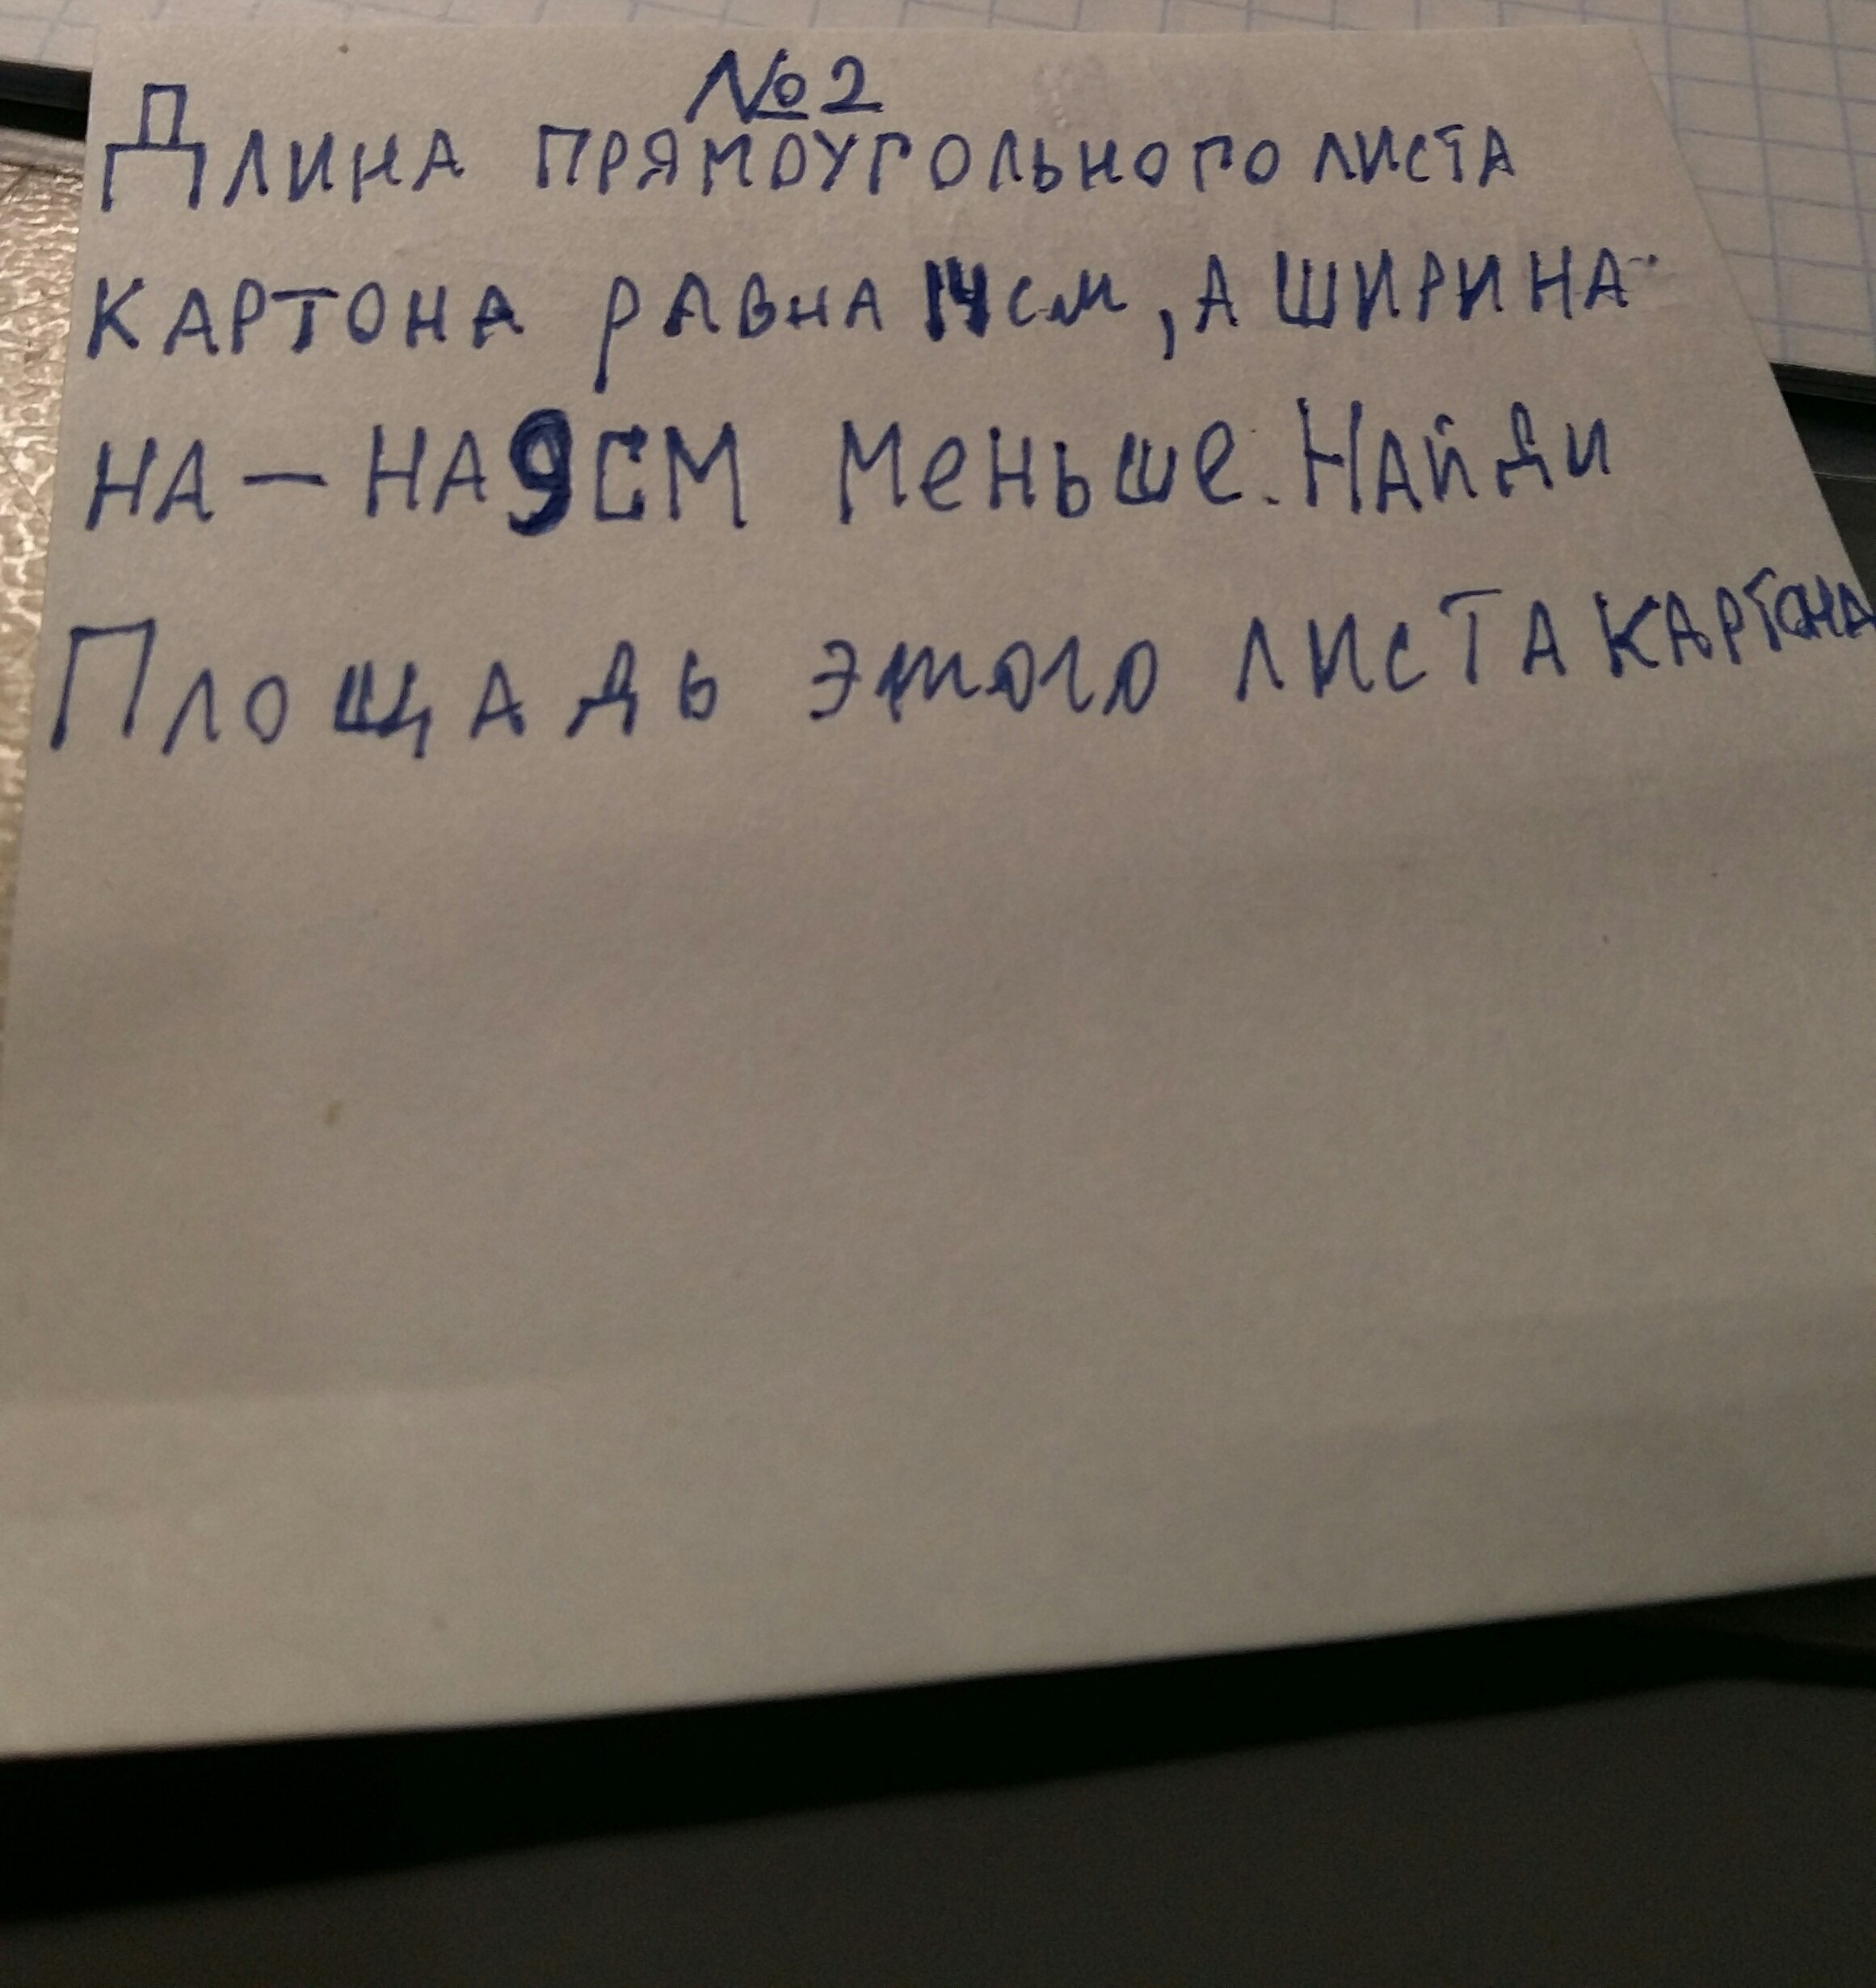 №2
Длина прямоугольного листа
картона равна 14см, а ширина
на — на 9см меньше. Найди
Площадь этого листа картона